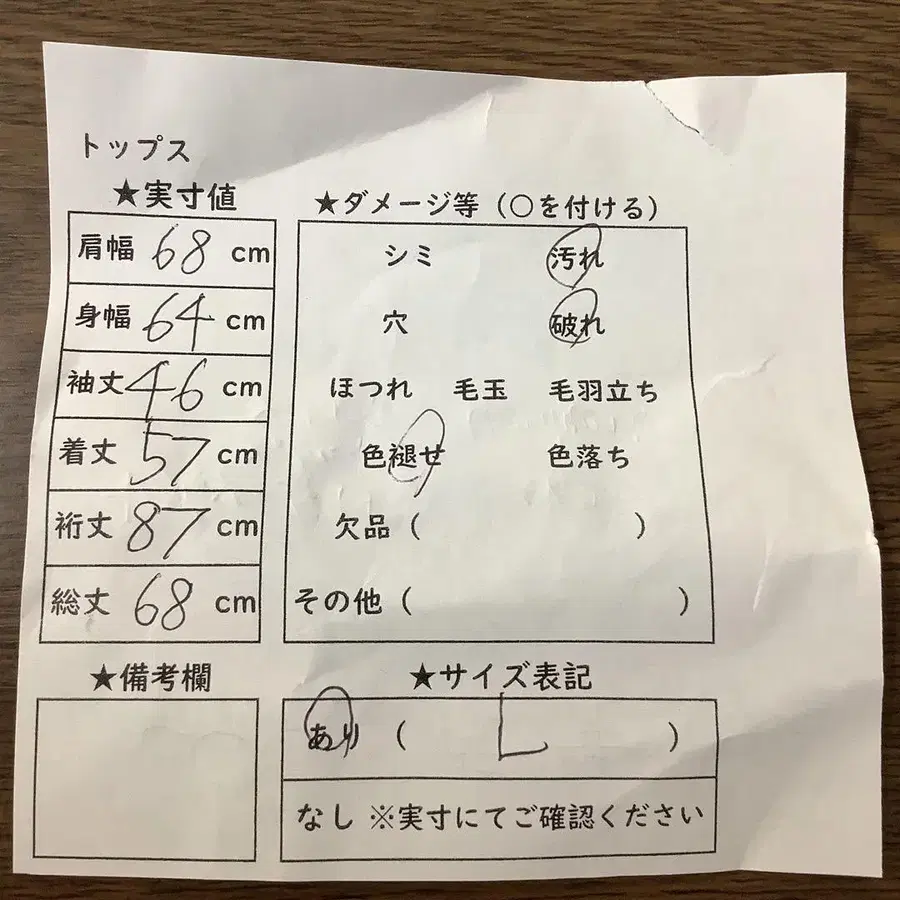 トップス
★実寸値
肩幅 68 cm
身幅 64 cm
袖丈 46 cm
着丈 57 cm
裄丈 87 cm
総丈 68 cm
★ダメージ等（○を付ける）
シミ 汚れ
穴 破れ
ほつれ 毛玉 毛羽立ち
色褪せ 色落ち
欠品（ ）
その他（ ）
★備考欄
★サイズ表記
あり （ L ）
なし ※実寸にてご確認ください